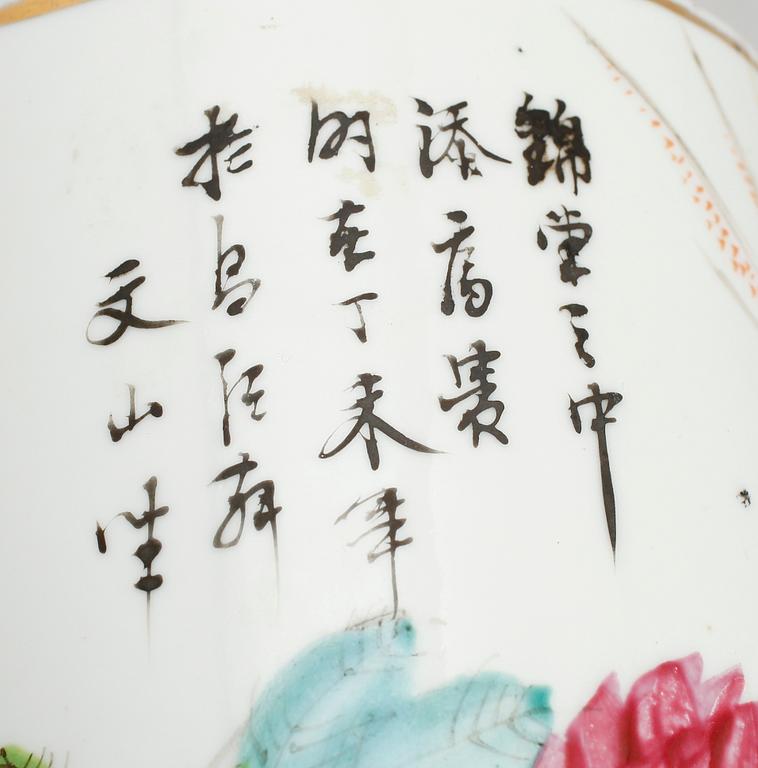 錦堂之中
添富貴
時在丁未年
於昌江軒
文山